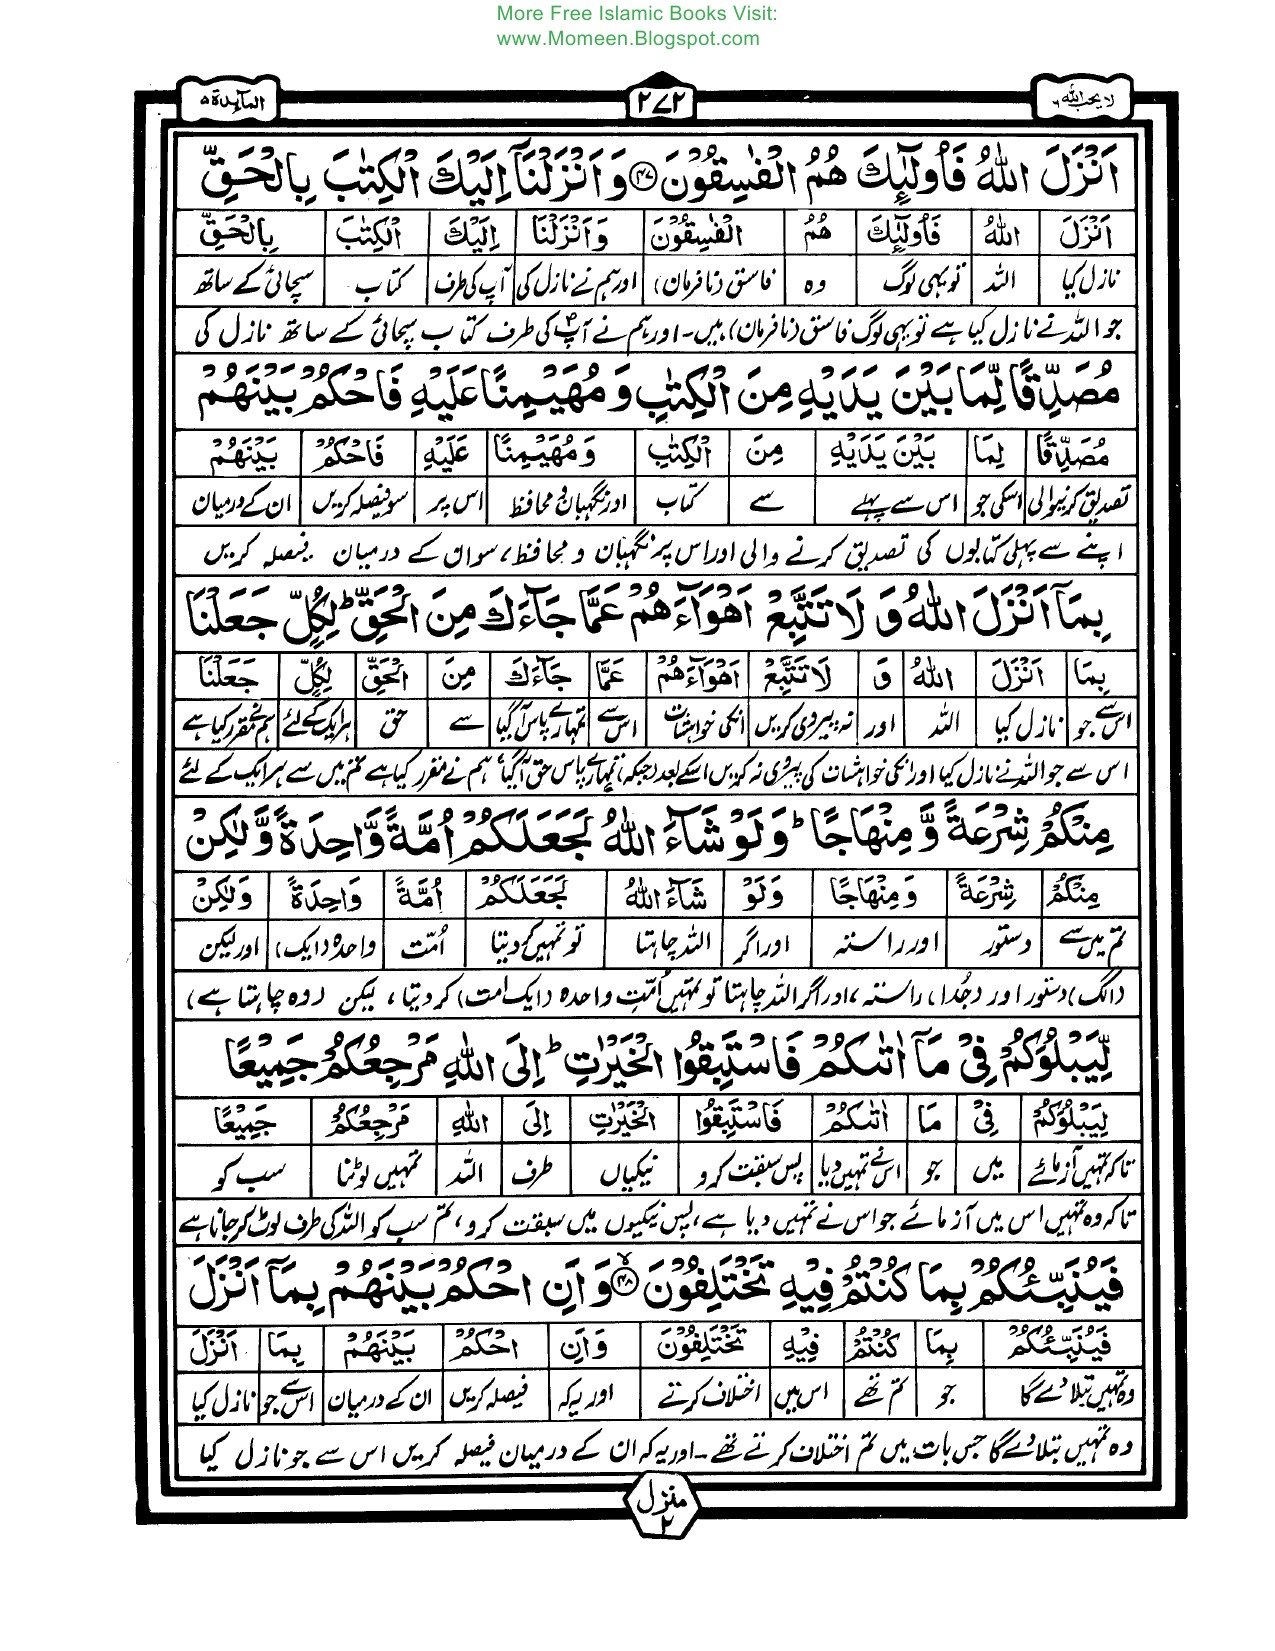 More Free Islamic Books Visit:
www.Momeen.Blogspot.com
لا یحب اللہ ٦ ٢٧٢ المآىِٕدة ٥
اَنْزَلَ اللّٰهُ فَاُولٰٓىِٕكَ هُمُ الْفٰسِقُوْنَ ﴿۴۷﴾ وَ اَنْزَلْنَاۤ اِلَیْكَ الْكِتٰبَ بِالْحَقِّ
اَنْزَلَ اللّٰهُ فَاُولٰٓىِٕكَ هُمُ الْفٰسِقُوْنَ وَاَنْزَلْنَا اِلَیْكَ الْكِتٰبَ بِالْحَقِّ
نازل کیا اللہ تو یہی لوگ وہ فاسق (نافرمان) اور ہم نے نازل کی آپ کی طرف کتاب سچائی کے ساتھ
جو اللہ نے نازل کیا ہے تو یہی لوگ فاسق (نافرمان) ہیں۔ اور ہم نے آپؐ کی طرف کتاب سچائی کے ساتھ نازل کی
مُصَدِّقًا لِّمَا بَیْنَ یَدَیْهِ مِنَ الْكِتٰبِ وَ مُهَیْمِنًا عَلَیْهِ فَاحْكُمْ بَیْنَهُمْ
مُصَدِّقًا لِمَا بَیْنَ یَدَیْهِ مِنَ الْكِتٰبِ وَمُهَیْمِنًا عَلَیْهِ فَاحْكُمْ بَیْنَهُمْ
تصدیق کرنیوالی اسکی جو اس سے پہلے سے کتاب اور نگہبان و محافظ اس پر سو فیصلہ کریں ان کے درمیان
اپنے سے پہلی کتابوں کی تصدیق کرنے والی اور اس پر نگہبان و محافظ، سو ان کے درمیان فیصلہ کریں
بِمَاۤ اَنْزَلَ اللّٰهُ وَ لَا تَتَّبِعْ اَهْوَآءَهُمْ عَمَّا جَآءَكَ مِنَ الْحَقِّ ؕ لِكُلٍّ جَعَلْنَا
بِمَا اَنْزَلَ اللّٰهُ وَ لَا تَتَّبِعْ اَهْوَآءَهُمْ عَمَّا جَآءَكَ مِنَ الْحَقِّ لِكُلٍّ جَعَلْنَا
اس سے جو نازل کیا اللہ اور نہ پیروی کریں انکی خواہشات اس سے تمہارے پاس آگیا سے حق ہر ایک کے لئے ہم نے مقرر کیا ہے
اس سے جو اللہ نے نازل کیا اور انکی خواہشات کی پیروی نہ کریں اسکے بعد (جبکہ) تمہارے پاس حق آگیا، ہم نے مقرر کیا ہے تم میں سے ہر ایک کے لئے
مِنْكُمْ شِرْعَةً وَّ مِنْهَاجًا ؕ وَ لَوْ شَآءَ اللّٰهُ لَجَعَلَكُمْ اُمَّةً وَّاحِدَةً وَّ لٰكِنْ
مِنْكُمْ شِرْعَةً وَمِنْهَاجًا وَلَوْ شَآءَ اللّٰهُ لَجَعَلَكُمْ اُمَّةً وَاحِدَةً وَلٰكِنْ
تم میں سے دستور اور راستہ اور اگر اللہ چاہتا تو تمہیں کر دیتا اُمّت واحدہ (ایک) اور لیکن
(الگ) دستور اور (جُدا) راستہ، اور اگر اللہ چاہتا تو تمہیں اُمّتِ واحدہ (ایک امت) کر دیتا، لیکن (وہ چاہتا ہے)
لِّیَبْلُوَكُمْ فِیْ مَاۤ اٰتٰىكُمْ فَاسْتَبِقُوا الْخَیْرٰتِ ؕ اِلَی اللّٰهِ مَرْجِعُكُمْ جَمِیْعًا
لِیَبْلُوَكُمْ فِیْ مَا اٰتٰىكُمْ فَاسْتَبِقُوا الْخَیْرٰتِ اِلَی اللّٰهِ مَرْجِعُكُمْ جَمِیْعًا
تاکہ تمہیں آزمائے میں جو اس نے تمہیں دیا پس سبقت کرو نیکیاں طرف اللہ تمہیں لوٹنا سب کو
تاکہ وہ تمہیں اس میں آزمائے جو اس نے تمہیں دیا ہے، پس نیکیوں میں سبقت کرو، تم سب کو اللہ کی طرف لوٹ کر جانا ہے
فَیُنَبِّئُكُمْ بِمَا كُنْتُمْ فِیْهِ تَخْتَلِفُوْنَ ﴿۴۸﴾ۙ وَ اَنِ احْكُمْ بَیْنَهُمْ بِمَاۤ اَنْزَلَ
فَیُنَبِّئُكُمْ بِمَا كُنْتُمْ فِیْهِ تَخْتَلِفُوْنَ وَاَنِ احْكُمْ بَیْنَهُمْ بِمَا اَنْزَلَ
وہ تمہیں بتلا دے گا جو تم تھے اس میں اختلاف کرتے اور یہ کہ فیصلہ کریں ان کے درمیان اس سے جو نازل کیا
وہ تمہیں بتلا دے گا جس بات میں تم اختلاف کرتے تھے۔ اور یہ کہ ان کے درمیان فیصلہ کریں اس سے جو نازل کیا
منزل ٢